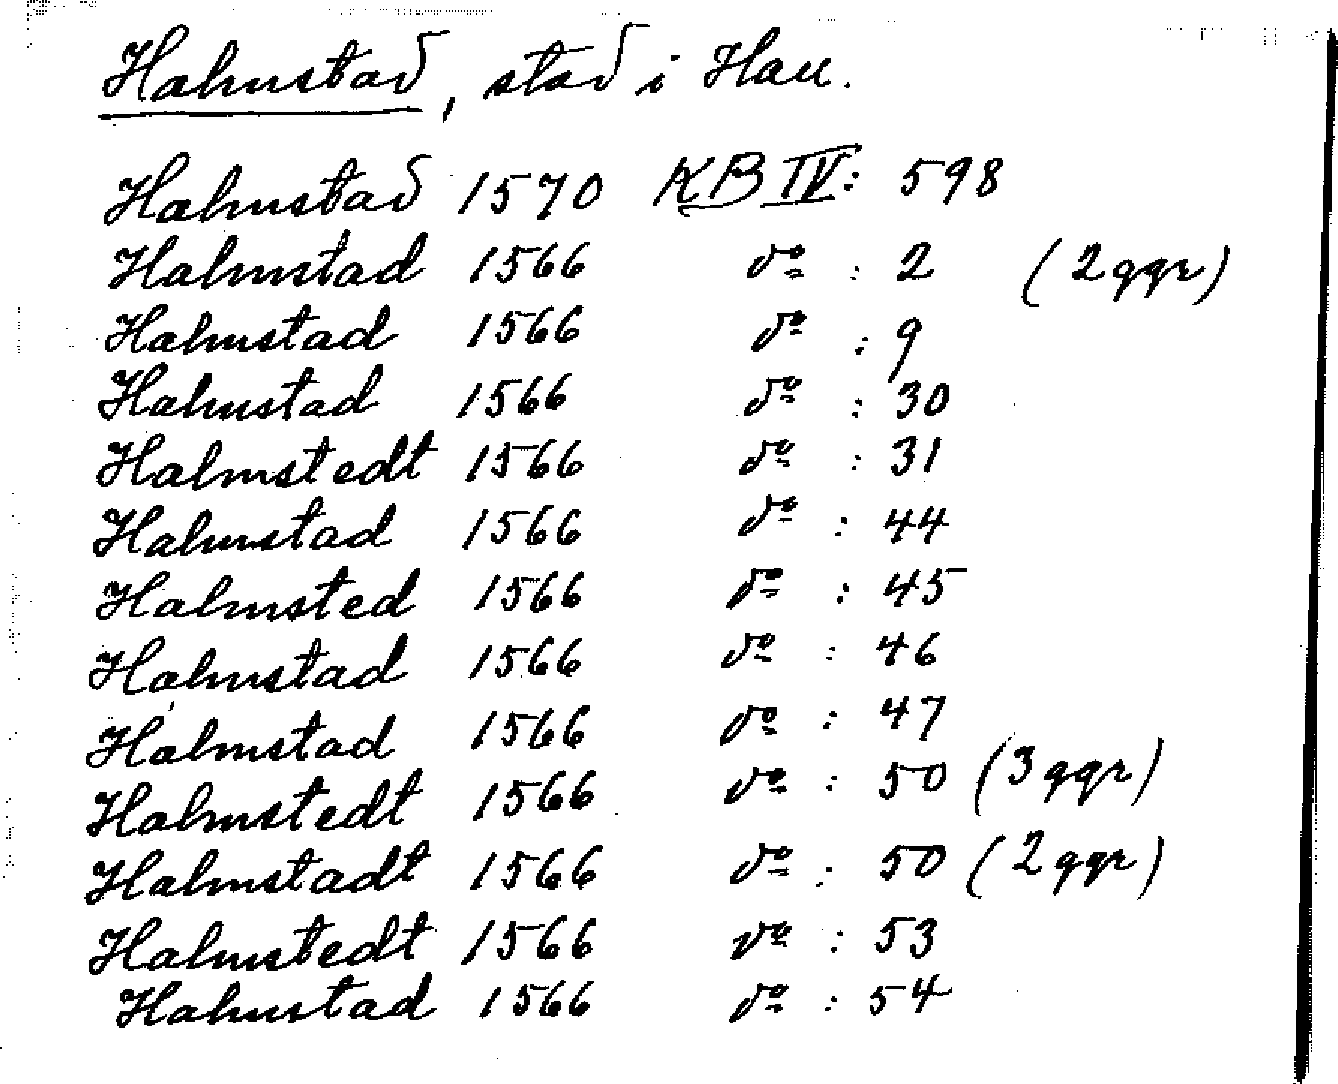 Halmstad, stad i Hall.
Halmstad 1570 KB IV: 598
Halmstad 1566 do : 2 (2 ggr)
Halmstad 1566 do : 9
Halmstad 1566 do : 30
Halmstedt 1566 do : 31
Halmstad 1566 do : 44
Halmsted 1566 do : 45
Halmstad 1566 do : 46
Halmstad 1566 do : 47
Halmstedt 1566 do : 50 (3 ggr)
Halmstadt 1566 do : 50 (2 ggr)
Halmstedt 1566 do : 53
Halmstad 1566 do : 54